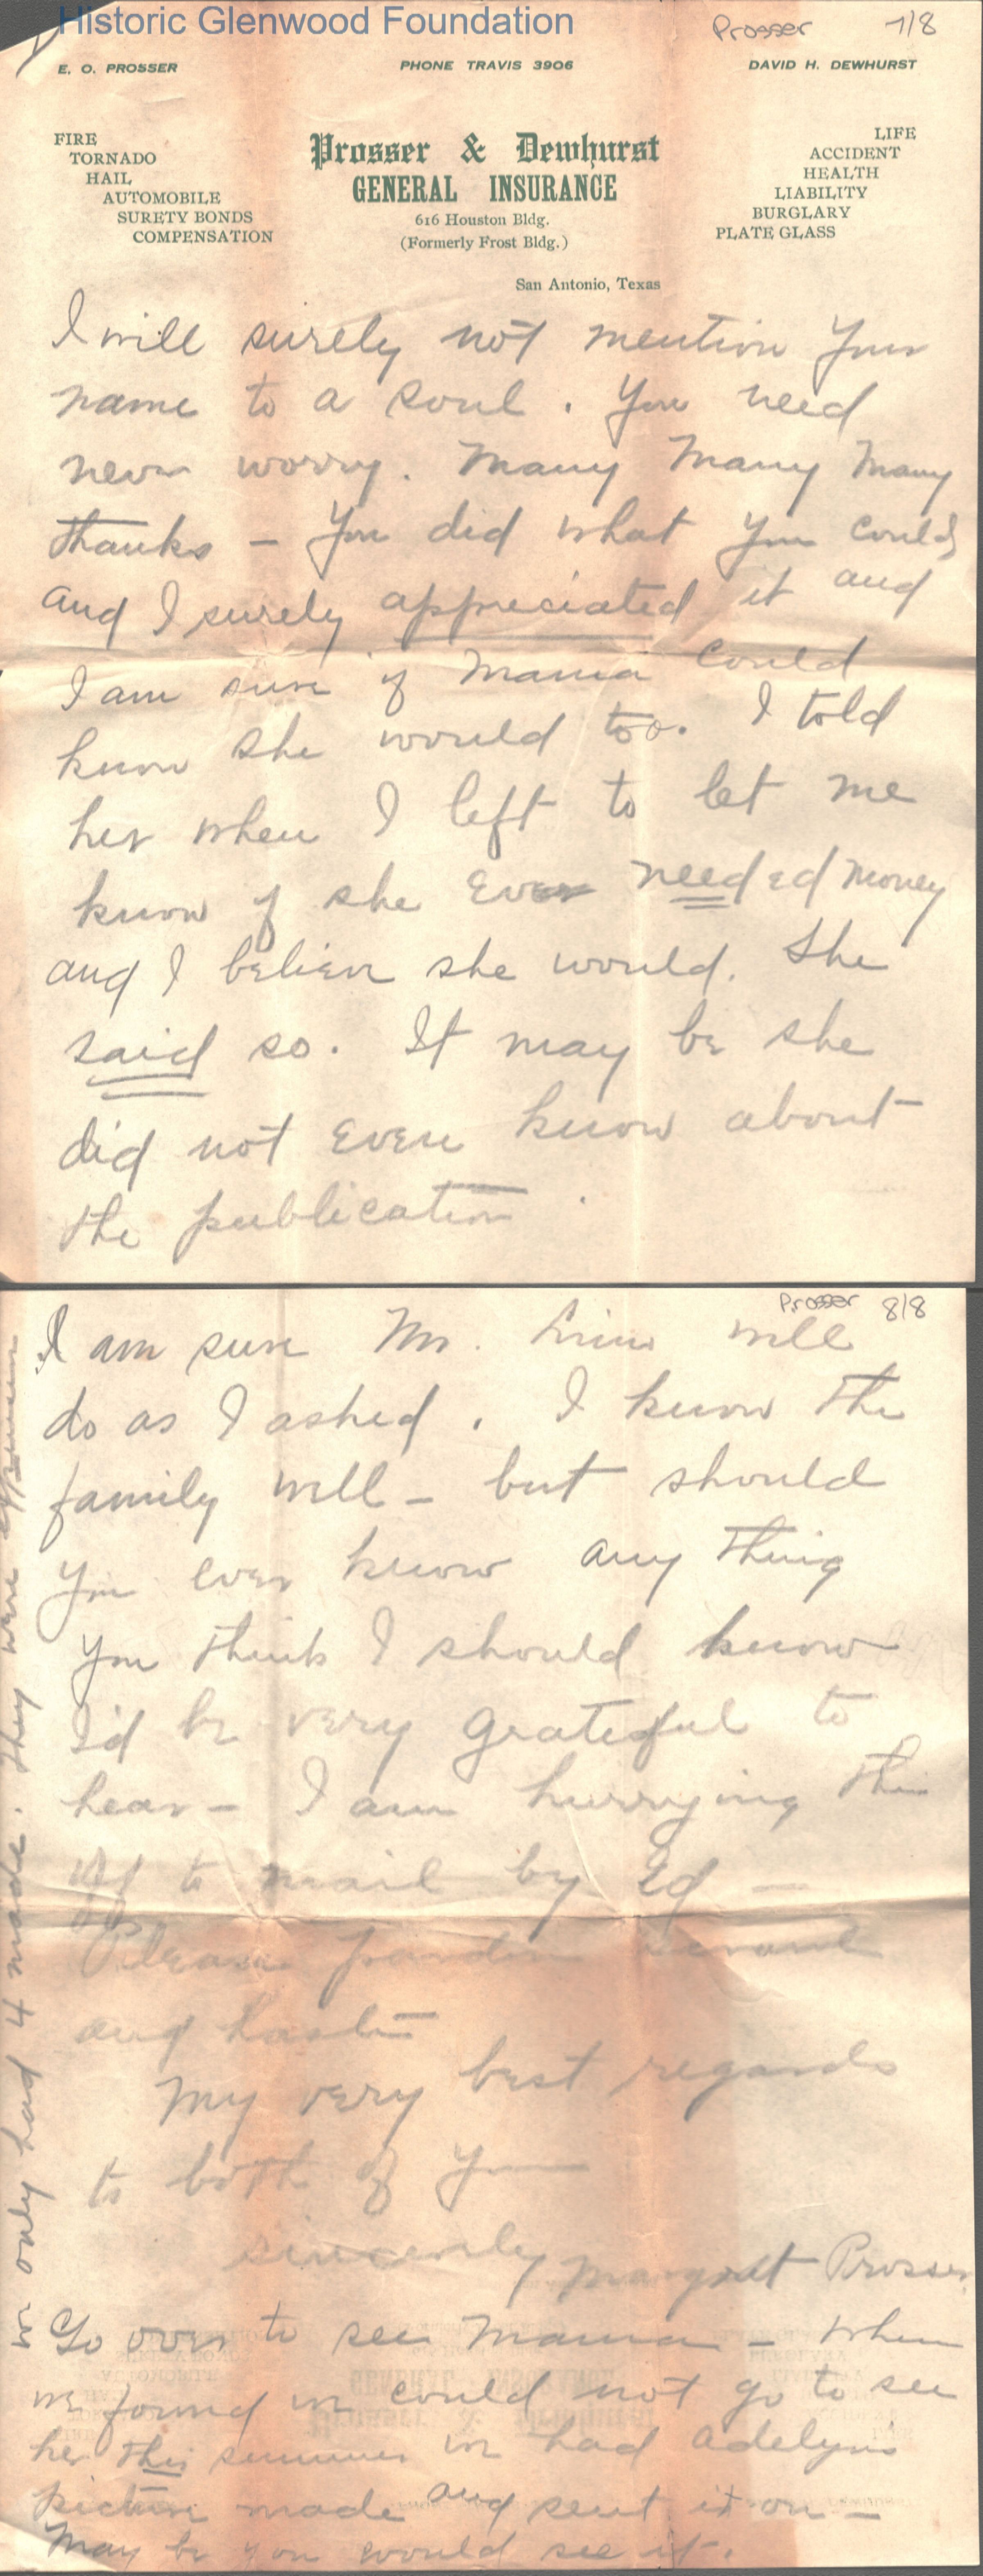 Historic Glenwood Foundation
Prosser 7/8
E. O. PROSSER
PHONE TRAVIS 3906
DAVID H. DEWHURST
FIRE
TORNADO
HAIL
AUTOMOBILE
SURETY BONDS
COMPENSATION
Prosser & Dewhurst
GENERAL INSURANCE
616 Houston Bldg.
(Formerly Frost Bldg.)
San Antonio, Texas
LIFE
ACCIDENT
HEALTH
LIABILITY
BURGLARY
PLATE GLASS
I will surely not mention your
name to a soul. You need
never worry. Many Many Many
thanks - You did what you could
and I surely appreciated it and
I am sure if Mama could
know she would too. I told
her when I left to let me
know if she ever needed money
and I believe she would. She
said so. It may be she
did not even know about
the publication.
Prosser 8/8
I am sure Mr. will
do as I asked. I know the
family well - but should
you ever know any thing
you think I should know
I'd be very grateful to
hear - I am hurrying this
off to mail by Ed -
Please pardon
and haste
My very best regards
to both of you
Sincerely Margaret Prosser
Go over to see Mama - When
we found we could not go to see
her this summer we had Adelyns
picture made and sent it on -
May be you would see it.
we only had 4 made. They were